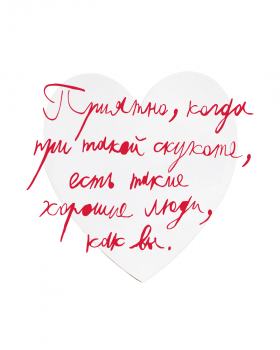 Приятно, когда
при такой скукоте,
есть такие
хорошие люди,
как вы.